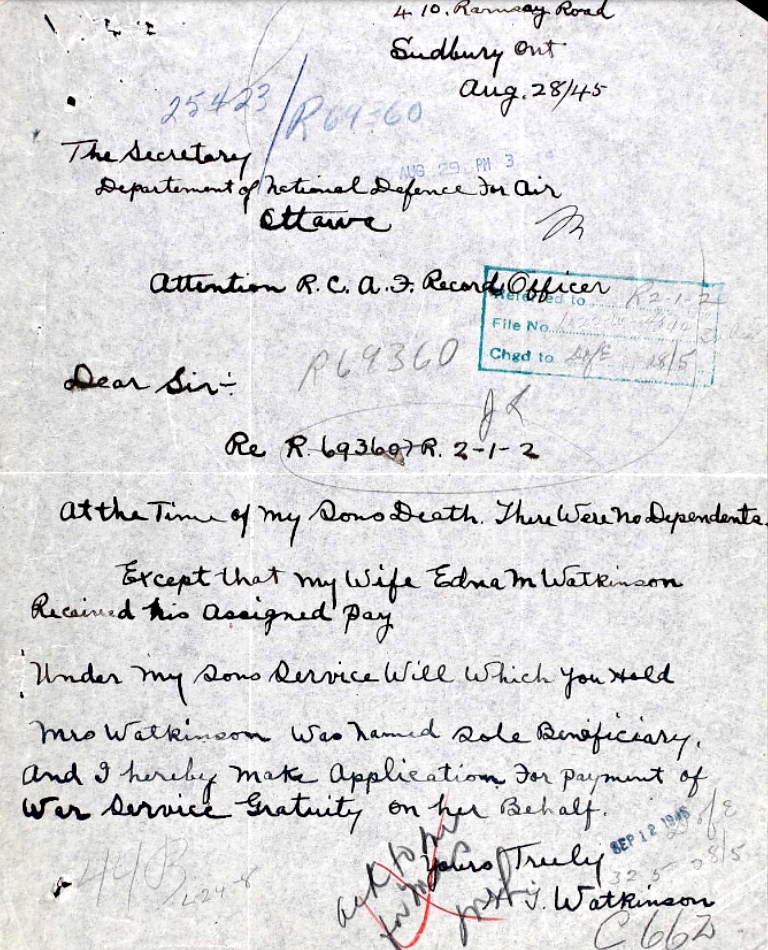 410. Ramsay Road
Sudbury Ont
Aug. 28/45
25423 / R69360
The Secretary
AUG 29 PM 3
Departement of National Defence For Air
Ottawa
Attention R. C. A. F. Record Officer
Referred to R2-1-2
File No.
Chgd to
R69360
Dear Sir:-
Re R. 69360 R. 2-1-2
At the Time of my Sons Death. There Were No Dependents.
Except that my Wife Edna M Watkinson
Received his Assigned Pay
Under my Sons Service Will Which You Hold
Mrs Watkinson Was Named Sole Beneficiary.
And I hereby Make Application For payment of
War Service Gratuity on her Behalf.
SEP 12 1945
Yours Truly
J. Watkinson
C662